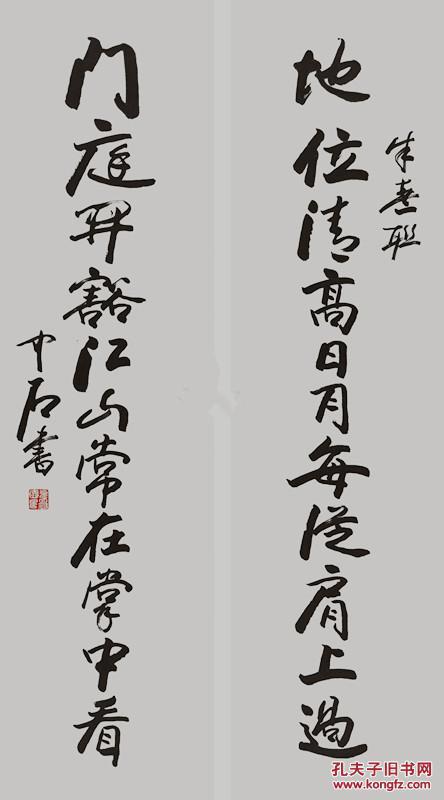 地位清高日月每從肩上過
朱熹聯
门庭开豁江山常在掌中看
中石書
孔夫子旧书网
www.kongfz.com